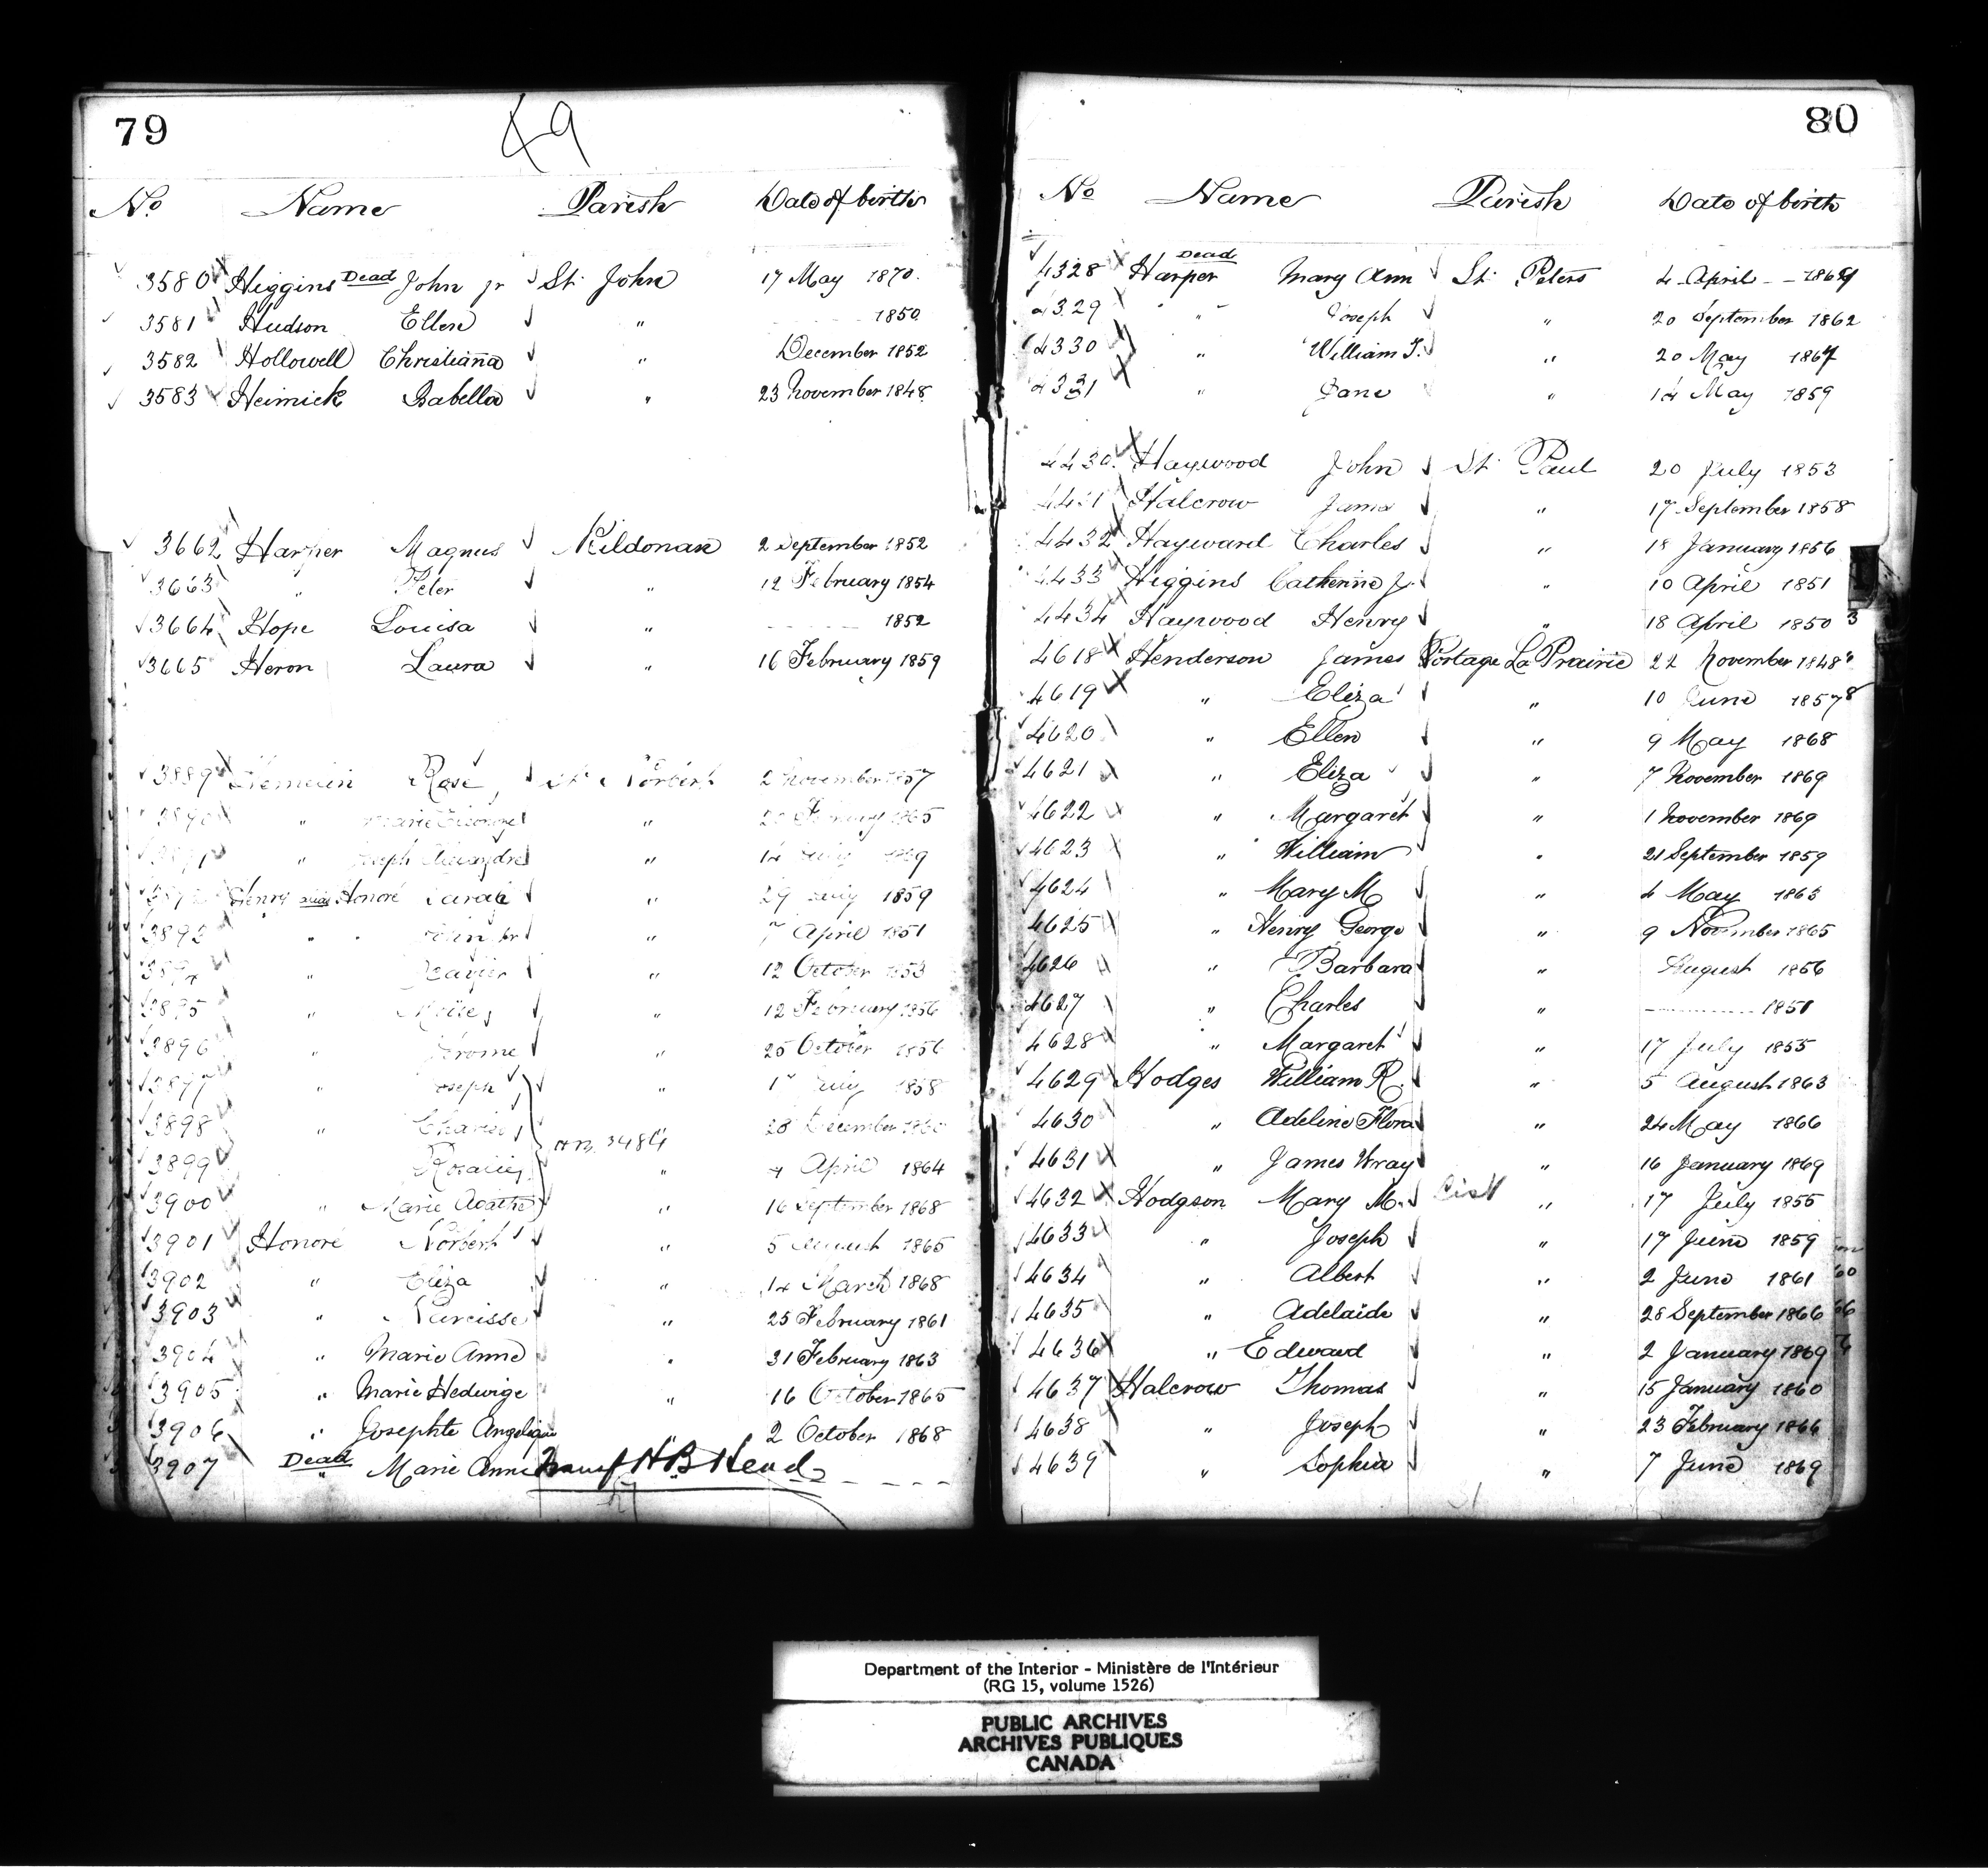 79
49
No Name Parish Date of birth
3580 Higgins Dead John jr St John 17 May 1870
3581 Hudson Ellen " 1850
3582 Hollowell Christiana " December 1852
3583 Heimick Isabella " 23 November 1848
3662 Harper Magnus Kildonan 2 September 1852
3663 " Peter " 12 February 1854
3664 Hope Louisa " 1852
3665 Heron Laura " 16 February 1859
3889 Rose St Norbert 2 November 1857
3890 " Marie " 1865
3891 " Joseph " 14 July 1869
3892 Henry alias Honoré Sarah " 29 July 1859
3893 " jr " 7 April 1851
3894 " Xavier " 12 October 1853
3895 " Moise " 12 February 1856
3896 " Jerome " 25 October 1856
3897 " Joseph " 1 July 1858
3898 " Charles " 28 December 1860
HB 3484
3899 Rosalie " 4 April 1864
3900 " Marie Agathe " 16 September 1868
3901 Honoré Norbert " 5 August 1865
3902 " Eliza " 14 March 1868
3903 " Narcisse " 25 February 1861
3904 " Marie Anne " 21 February 1863
3905 " Marie Hedwige " 16 October 1865
3906 " Josephte Angelique 2 October 1868
3907 Dead " Marie Anne Transf H B Head
80
No Name Parish Date of birth
4328 Harper Dead Mary Ann St Peters 4 April 1864
4329 " Joseph " 20 September 1862
4330 " William T. " 20 May 1867
4331 " Jane " 14 May 1859
4430 Haywood John St Paul 20 July 1853
4431 Halcrow James " 17 September 1858
4432 Hayward Charles " 18 January 1856
4433 Higgins Catherine J. " 10 April 1851
4434 Haywood Henry " 18 April 1850 3
4618 Henderson James Portage La Prairie 22 November 1848
4619 " Eliza " 10 June 1857 8
4620 " Ellen " 9 May 1868
4621 " Eliza " 7 November 1869
4622 " Margaret " 1 November 1869
4623 " William " 21 September 1859
4624 " Mary M " 4 May 1863
4625 " Henry George " 9 November 1865
4626 " Barbara " August 1856
4627 " Charles " 1851
4628 " Margaret " 17 July 1855
4629 Hodges William R. " 5 August 1863
4630 " Adeline Flora " 24 May 1866
4631 " James Wray " 16 January 1869
4632 Hodgson Mary M. List " 17 July 1855
4633 " Joseph " 17 June 1859
4634 " Albert " 2 June 1861 60
4635 " Adelaide " 28 September 1866 66
4636 " Edward " 2 January 1869
4637 Halcrow Thomas " 15 January 1860
4638 " Joseph " 23 February 1866
4639 " Sophia " 7 June 1869
31
Department of the Interior - Ministère de l'Intérieur
(RG 15, volume 1526)
PUBLIC ARCHIVES
ARCHIVES PUBLIQUES
CANADA